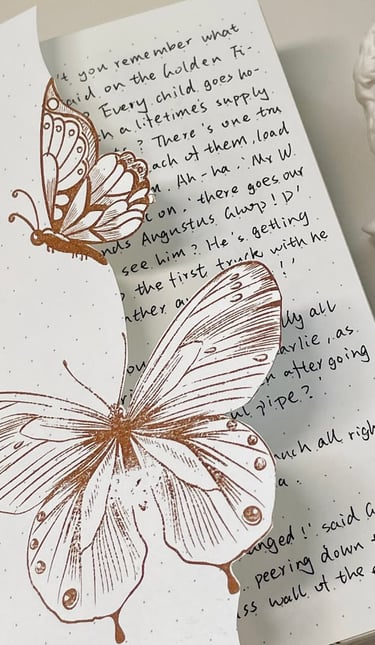 't you remember what
aid on the Golden Ti-
? Every child goes ho-
h a lifetime's supply
? There's one tru
ach of them, load
Ah-ha.' Mr W.
on, 'there goes our
nds Augustus Gloop! D'
see him? He's getting
the first truck with he
ther a !'
lly all
arlie, as
n after going
ul pipe?'
uch all righ
a.
anged!' said G
peering down t
ss wall of the e